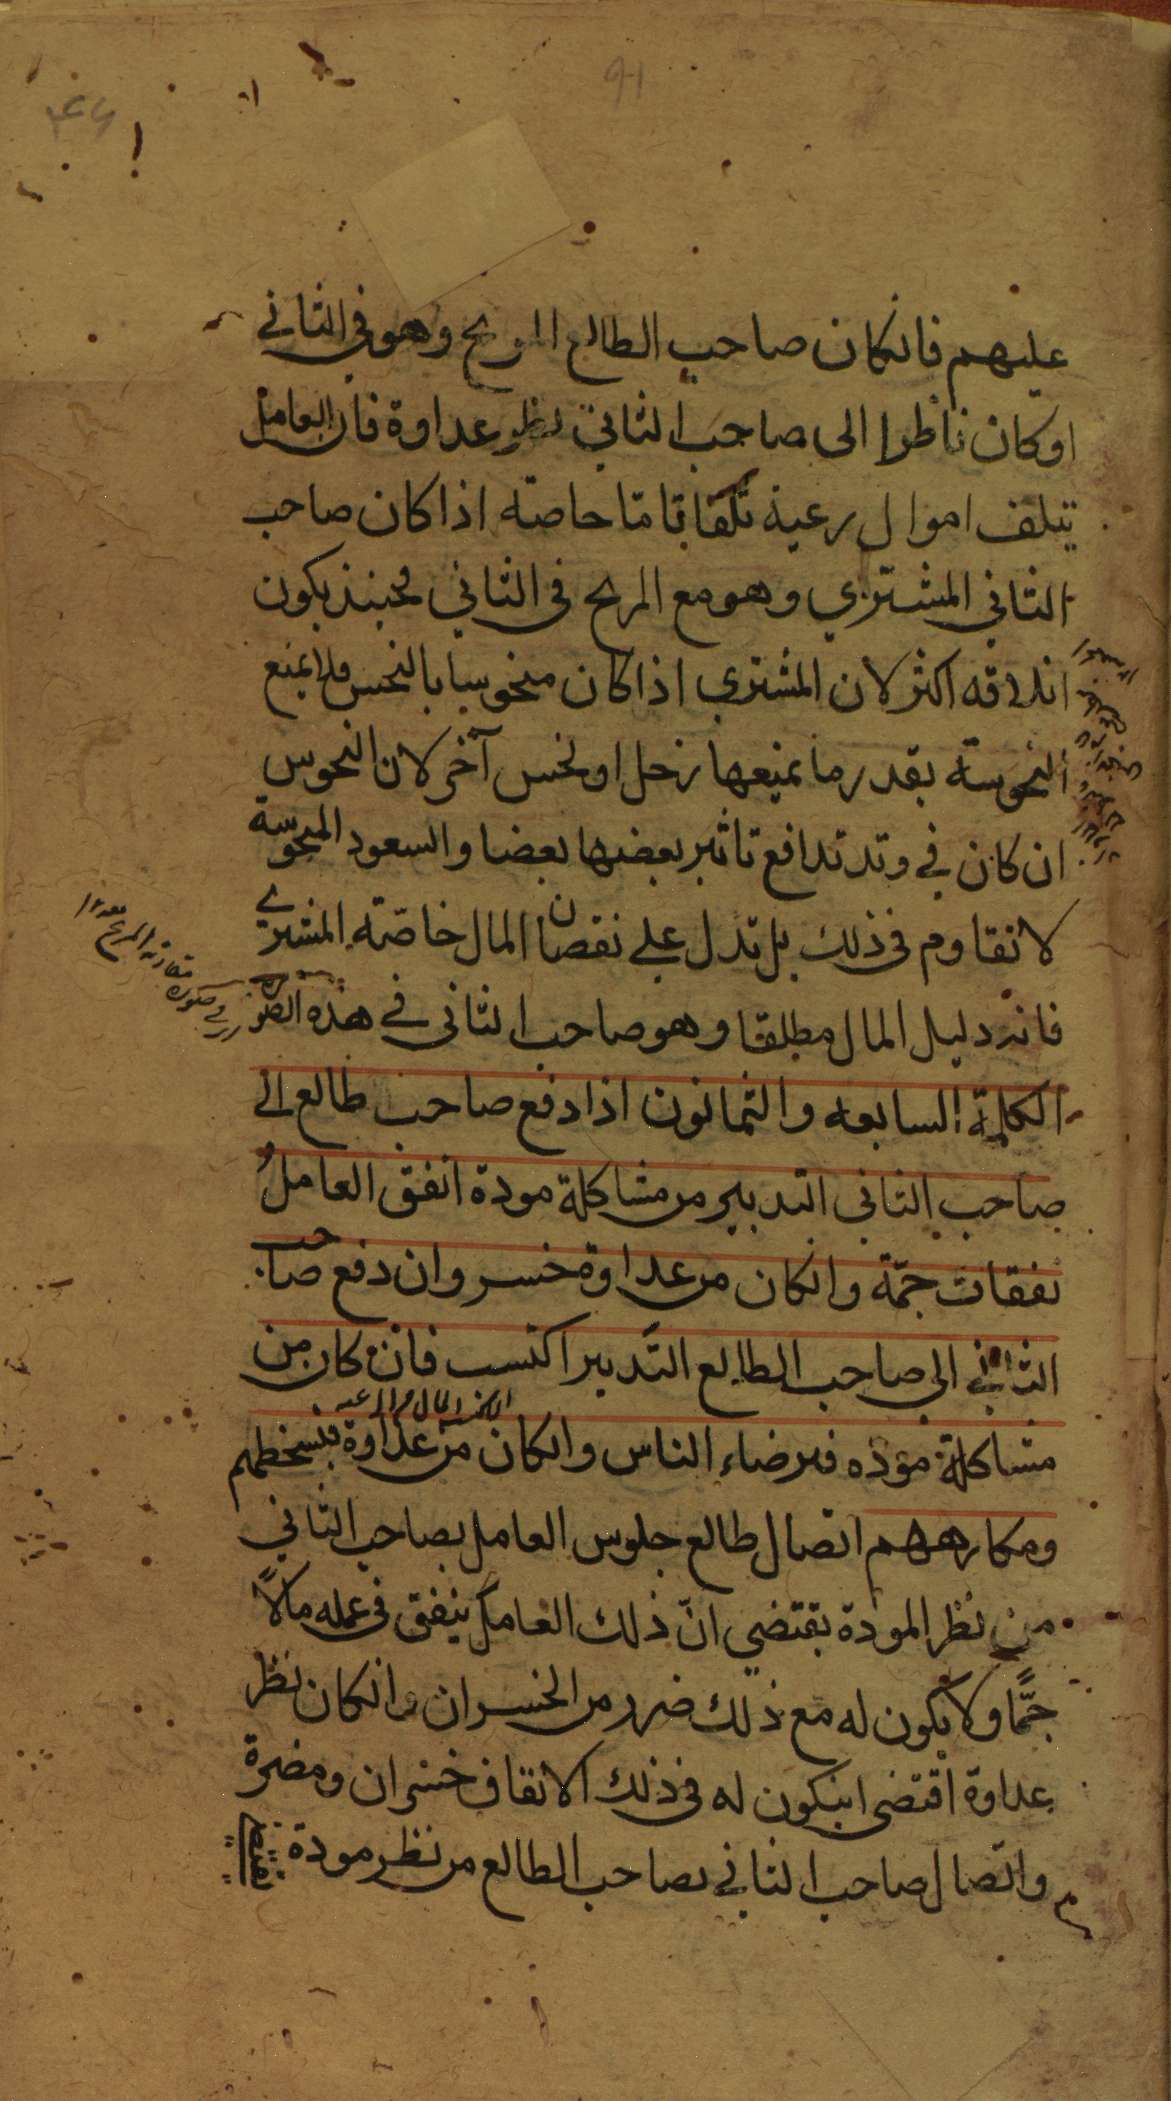 91
۴۶
عليهم فانكان صاحب الطالع المريخ وهو فى الثانے
اوكان ناظرا الى صاحب الثانى نظر عداوة فان العامل
يتلف اموال رعيته تلفا تاما خاصة اذا كان صاحب
الثاني المشتري وهو مع المريخ فى الثاني فحينئذ يكون
اتلافه اكثر لان المشتري اذا كان منحوسا بالنحس فلا يمنع
النحوسة بقدر ما يمنعها زحل او نحس آخر لان النحوس
ان كان فے وتد تدافع تاثير بعضها بعضا والسعود المنحوسة
لا تقاوم فى ذلك بل تدل علے نقصان المال خاصّة المشترے
فانه دليل المال مطلقا وهو صاحب الثانى فے هذه الصو
فے صورة مقارنه المريخ معه ١٢
الكلمة السابعه والثمانون اذا دفع صاحب طالع الے
صاحب الثانى التدبير من مشاكلة مودة انفق العاملُ
نفقات جمّة وانكان من عداوة خسر وان دفع صاحب
الثانے الى صاحب الطالع التّدبير اكتسب فان كان من
مشاكلة مودّه فبرضاء الناس وانكان من عداوة فبسخطهم
ومكارههم اتصال طالع جلوس العامل بصاحب الثانى
من نظر المودة يقتضى انّ ذلك العامل ينفق فى عمله مالًا
جمًّا ولا يكون له مع ذلك ضرر من الخسران وانكان نظر
عداوة اقتضى ان يكون له فى ذلك الانفاق خسران ومضرة
واتصال صاحب الثانى بصاحب الطالع من نظر مودة
يقتضي